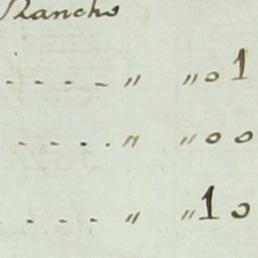 Rancho
- - - - - " " 0 1
- - - - . " " 0 0
- - - - " " 1 0